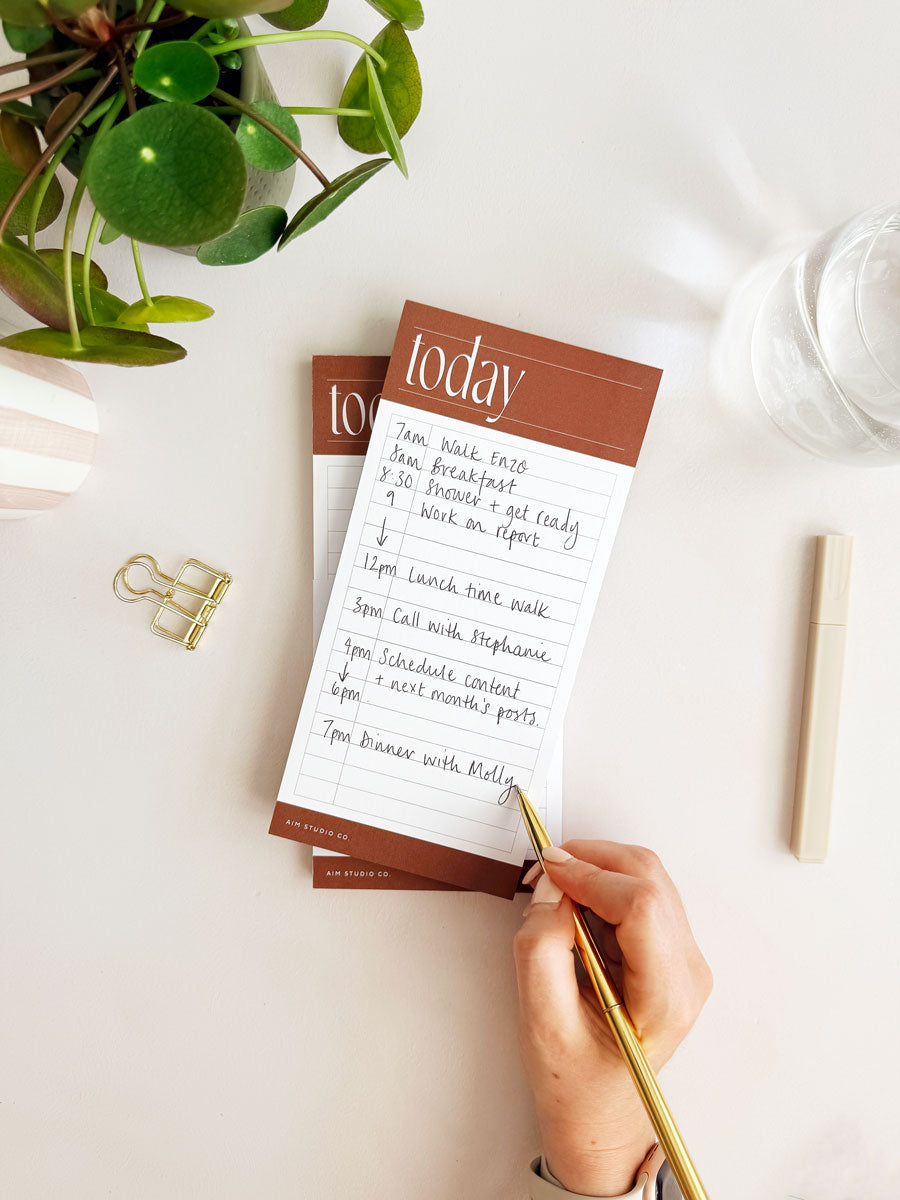 today
7am Walk Enzo
8am Breakfast
8:30 Shower + get ready
9 Work on report
↓
12pm Lunch time walk
3pm Call with Stephanie
4pm Schedule content
↓ + next month's posts.
6pm
7pm Dinner with Molly
AIM STUDIO CO.
to
AIM STUDIO CO.